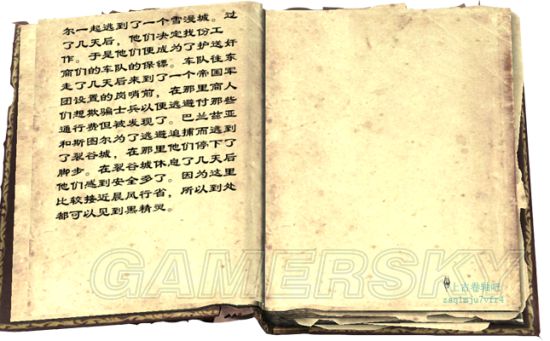 尔一起逃到了一个雪漫城。过
了几天后，他们决定找份工
作。于是他们便成为了护送奸
商们的车队的保镖。车队往东
走了几天后来到了一个帝国军
团设置的岗哨前，在那里商人
们想欺骗士兵以便逃避付那些
通行费但被发现了。巴兰兹亚
和斯图尔为了逃避追捕而逃到
了裂谷城，在那里他们停下了
脚步。在裂谷城休息了几天后
他们感到安全多了。因为这里
比较接近晨风行省，所以到处
都可以见到黑精灵。
GAMERSKY
上古卷轴吧
zaqimju7vfr4